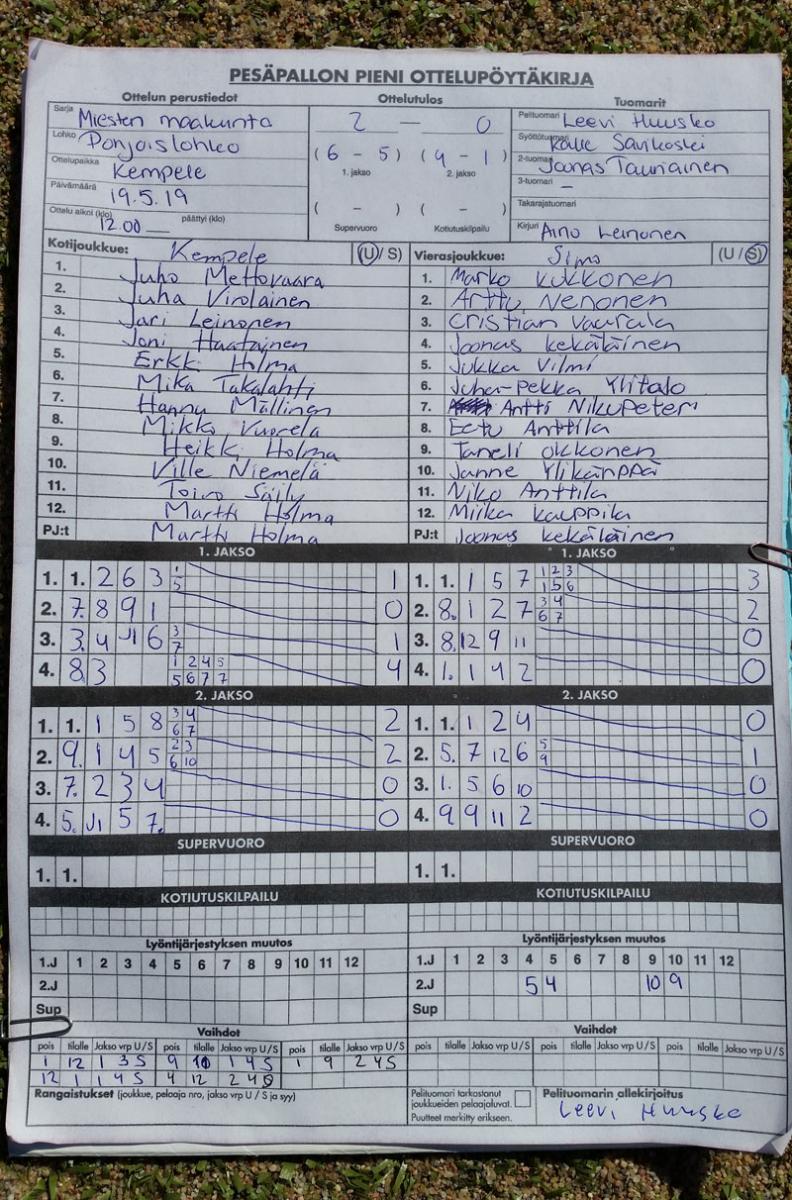 PESÄPALLON PIENI OTTELUPÖYTÄKIRJA
Ottelun perustiedot
Sarja Miesten maakunta
Lohko Pohjoislohko
Ottelupaikka Kempele
Päivämäärä 19.5.19
Ottelu alkoi (klo) 12.00 päättyi (klo)
Ottelutulos
2 — 0
(6 - 5) (4 - 1)
1. jakso 2. jakso
( - ) ( - )
Supervuoro Kotiutuskilpailu
Tuomarit
Pelituomari Leevi Huusko
Kalle Savikoski
2-tuomari Joonas Tauriainen
3-tuomari –
Takarajatuomari
Kirjuri Aino Leinonen
Kotijoukkue: Kempele (U/S)
1. Juho Mettovaara
2. Juha Virolainen
3. Jari Leinonen
4. Joni Haatainen
5. Erkki Holma
6. Mika Takalahti
7. Hannu Mällinen
8. Mikko Vuorela
9. Heikki Holma
10. Ville Niemelä
11. Toivo Säily
12. Martti Holma
PJ:t Martti Holma
Vierasjoukkue: Simo (U/S)
1. Marko Kukkonen
2. Arttu Nenonen
3. Cristian Vaarala
4. Joonas Kekäläinen
5. Jukka Vilmi
6. Juha-Pekka Ylitalo
7. Antti Nikupeteri
8. Eetu Anttila
9. Taneli Okkonen
10. Janne Ylikärppä
11. Niko Anttila
12. Miika Kauppila
PJ:t Joonas Kekäläinen
1. JAKSO
1. 1. 2 6 3 1 5 1
2. 7. 8 9 1 0
3. 3. 4 J1 6 3 7 1
4. 8 3 1 2 4 5 5 6 7 7 4
2. JAKSO
1. 1. 1 5 8 3 4 6 7 2
2. 9. 1 4 5 2 3 6 10 2
3. 7. 2 3 4 0
4. 5. J1 5 7. 0
SUPERVUORO
1. 1.
KOTIUTUSKILPAILU
Lyöntijärjestyksen muutos
1.J 1 2 3 4 5 6 7 8 9 10 11 12
2.J
Sup
Vaihdot
pois tilalle Jakso vrp U/S pois tilalle Jakso vrp U/S pois tilalle Jakso vrp U/S
1 12 1 3 S 9 10 1 4 S 1 9 2 4 S
12 1 1 4 S 4 12 2 4
Rangaistukset (joukkue, pelaaja nro, jakso vrp U / S ja syy)
1. JAKSO
1. 1. 1 5 7 1 2 3 1 5 6 3
2. 8. 1 2 7 3 4 6 7 2
3. 8. 12 9 11 0
4. 1. 1 4 2 0
2. JAKSO
1. 1. 1 2 4 0
2. 5. 7 12 6 5 9 1
3. 1. 5 6 10 0
4. 9 9 11 2 0
SUPERVUORO
1. 1.
KOTIUTUSKILPAILU
Lyöntijärjestyksen muutos
1.J 1 2 3 4 5 6 7 8 9 10 11 12
2.J 5 4 10 9
Sup
Vaihdot
pois tilalle Jakso vrp U/S pois tilalle Jakso vrp U/S pois tilalle Jakso vrp U/S
Pelituomari tarkastanut
joukkueiden pelaajaluvat.
Puutteet merkitty erikseen.
Pelituomarin allekirjoitus
Leevi Huusko